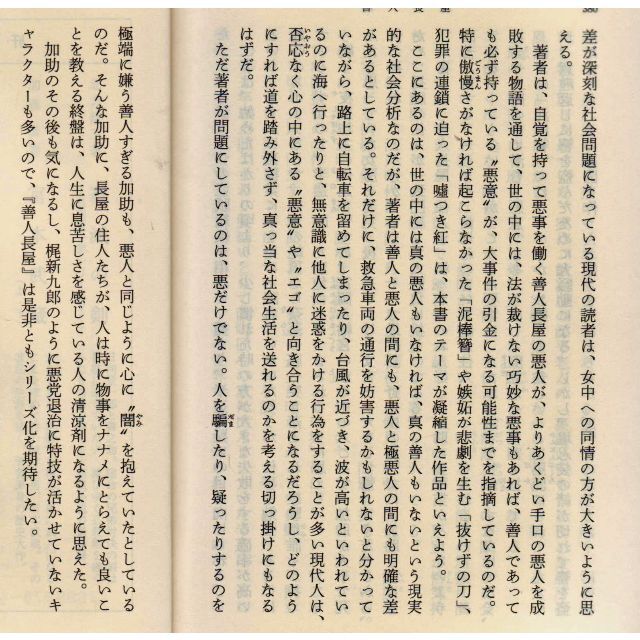 差が深刻な社会問題になっている現代の読者は、女中への同情の方が大きいように思
える。
著者は、自覚を持って悪事を働く善人長屋の悪人が、よりあくどい手口の悪人を成
敗する物語を通して、世の中には、法が裁けない巧妙な悪事もあれば、善人であって
も必ず持っている〝悪意〟が、大事件の引金になる可能性までを指摘しているのだ。
特に傲慢さがなければ起こらなかった「泥棒簪」や嫉妬が悲劇を生む「抜けずの刀」、
犯罪の連鎖に迫った「嘘つき紅」は、本書のテーマが凝縮した作品といえよう。
ここにあるのは、世の中には真の悪人もいなければ、真の善人もいないという現実
的な社会分析なのだが、著者は善人と悪人の間にも、悪人と極悪人の間にも明確な差
があるとしている。それだけに、救急車両の通行を妨害するかもしれないと分かって
いながら、路上に自転車を留めてしまったり、台風が近づき、波が高いといわれてい
るのに海へ行ったりと、無意識に他人に迷惑をかける行為をすることが多い現代人は、
否応なく心の中にある〝悪意〟や〝エゴ〟と向き合うことになるだろうし、どのよう
にすれば道を踏み外さず、真っ当な社会生活を送れるのかを考える切っ掛けにもなる
はずだ。
ただ著者が問題にしているのは、悪だけでない。人を騙したり、疑ったりするのを
極端に嫌う善人すぎる加助も、悪人と同じように心に〝闇〟を抱えていたとしている
のだ。そんな加助に、長屋の住人たちが、人は時に物事をナナメにとらえても良いこ
とを教える終盤は、人生に息苦しさを感じている人の清涼剤になるように思えた。
加助のその後も気になるし、梶新九郎のように悪党退治に特技が活かせていないキ
ャラクターも多いので、『善人長屋』は是非ともシリーズ化を期待したい。